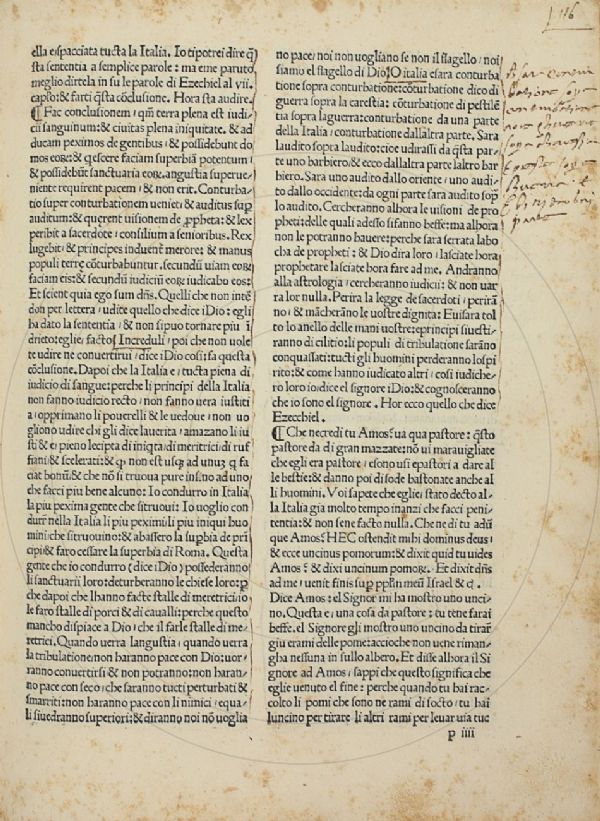 ella espacciata tucta la Italia. Io tipotrei dire q̃
sta sententia a semplice parole: ma eme paruto
meglio dirtela in su le parole di Ezechiel al vii.
capło:& farti q̃sta cõclusione. Hora sta audire.
¶ Fac conclusionem, qm̃ terra plena est iudi/
cii sanguinum:& ciuitas plena iniquitate. & ad
ducam pexímos de gentibus / & possidebunt do
mos eoꝝ:& q̃escere faciam superbiã potentum /
& possidebũt sanctuaria eoꝝ.angustia superue/
niente requirent pacem / & non erit. Conturba/
tio super conturbationem ueniet:& auditus sup̃
auditum:& querent uisionem de ꝓpheta:& lex
peribit a sacerdote / consilium a senioribus. Rex
lugebit:& princeps induetr̃ merore:& manus
populi terrę cõturbabuntur.secundũ uiam eoꝝ
faciam eis:& secundũ iudiciũ eoꝝ iudicabo eos:
Et scient quia ego sum dñs. Quelli che non intẽ
don per lettera / udite quello che dice iDio: egli
ha dato la sententia / & non sipuo tornare piu i
drieto:eglie / facto Increduli / poi che non uole
te udire ne conuertirui / dice iDio cosi: fa questa
cõclusione. Dapoi che la Italia e / tucta piena di
iudicio di sangue:perche li principi della Italia
non fanno iudicio recto / & non fanno uera iustiti
a / opprimano li pouerelli & le uedoue / non uo
gliono udire chi gli dice lauerita / amazano li iu
sti & e / pieno lecipta di iniq̃ta / di meritrici di ruf
fiani & scelerati:& ꝙ non est usq̃ ad unuꝫ q̃ fa
ciat bonũ:& che nõ si truoua pure insino ad uno
che facci piu bene alcuno: Io condurro in Italia
la piu pexima gente che sitruoui: Io uoglio con
durr̃ nella Italia li piu pexímí:li piu iniqui huo
mini che sitruouino:& abassero la sup̃bia de prĩ
cipi:& faro cessare la superbia di Roma. Questa
gente che io condurro (dice iDio) possederanno
li sanctuarii loro:deturberanno le chiese loro:ꝑ
che dapoi che lhanno facte stalle di meretrici:io
le faro stalle di porci & di caualli:perche questo
mancho dispiace a Dio / che il farle stalle di me/
retrici. Quando uerra langustia / quando uerra
la tribulatione/non haranno pace con Dio:uor/
ranno conuertirsi & non potranno:non haran/
no pace con seco / che saranno tucti perturbati &
smarriti:non haranno pace con li nimici / equa/
li siuedranno superiori:& diranno noi nõ uoglia
no pace/noi non uogliano se non il flagello / noi
siamo el flagello di Dio:O italia esara conturba
tione sopra conturbatione:cõturbatione dico di
guerra sopra la carestia: cõturbatione di pestilẽ
tia sopra laguerra:conturbatione da una parte
della Italia / conturbatione dallaltra parte. Sara
laudito sopra laudito:cioe udirassi da q̃sta par
te uno barbiero/& ecco dallaltra parte laltro bar
biero. Sara uno audito dallo oriente / uno audi/
to dallo occidente:da ogni parte sara audito sop̃
lo audito. Cercheranno alhora le uisioni de pro
pheti:delle quali adesso sifanno beffe:ma alhora
non le potranno hauere:perche sara serrata labo
cha de propheti: & Dio dira loro / lasciate hora
prophetare lasciate hora fare ad me. Andranno
alla astrologia / cercheranno iudicii:& non uar/
ra lor nulla. Perira la legge de sacerdoti / perirã/
no / & mãcherãno le uostre dignita: Euisara tol
to lo anello delle mani uostre:eprincipi siuesti/
ranno di cilitio:li populi di tribulatione sarãno
conquassati:tucti gli huomini perderanno lospi
rito:& come hanno iudicato altri / cosi iudiche/
ro loro io:dice el signore iDio:& cognosceranno
che io sono el signore. Hor ecco quello che dice
Ezecchiel.
¶ Che necredi tu Amos? ua qua pastore: q̃sto
pastore da di gran mazzate:nõ ui marauigliate
che egli era pastore / esono usi epastori a dare al
le bestie:& danno poi di sode bastonate anche al
li huomini. Voi sapete che egli e / stato decto al/
la Italia gia molto tempo inanzi che facci peni/
tentia:& non sene facto nulla. Che ne di tu adũ/
que Amos? HEC ostendit mihi dominus deus/
& ecce uncinus pomorum:& dixit quid tu uides
Amos? & dixi uncinum pomoꝝ. Et dixit dñs
ad me / uenit finis sup̃ pp̃lm meũ Israel & c̃.
Dice Amos: el Signor mi ha mostro uno unci/
no. Questa e / una cosa da pastore: tu tene farai
beffe. el Signore gli mostro uno uncino da tirar̃
giu erami delle pome:accioche non uene riman/
gha nessuna in sullo albero. Et disse alhora il Si
gnore ad Amos / sappi che questo significa che
eglie uenuto el fine: perche quando tu hai rac/
colto li pomi che sono ne rami di socto / tu hai
luncino per tirare li altri rami per leuar uia tuc
p iiii